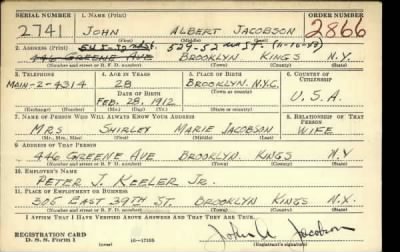 SERIAL NUMBER 1. NAME (Print) ORDER NUMBER
2741 JOHN ALBERT JACOBSON 2866
(First) (Middle) (Last)
2. ADDRESS (Print)
529-52 ST.
446 GREENE AVE BROOKLYN KINGS N.Y.
(Number and street or R. F. D. number) (Town) (County) (State)
3. TELEPHONE 4. AGE IN YEARS 5. PLACE OF BIRTH 6. COUNTRY OF CITIZENSHIP
MAIN-2-4314 28 BROOKLYN, N.Y.C.
DATE OF BIRTH
FEB. 28, 1912 U.S.A.
(Exchange) (Number) (Mo.) (Day) (Yr.) (State or country)
7. NAME OF PERSON WHO WILL ALWAYS KNOW YOUR ADDRESS 8. RELATIONSHIP OF THAT PERSON
MRS SHIRLEY MARIE JACOBSON WIFE
(Mr., Mrs., Miss) (First) (Middle) (Last)
9. ADDRESS OF THAT PERSON
446 GREENE AVE BROOKLYN. KINGS N.Y
(Number and street or R. F. D. number) (Town) (County) (State)
10. EMPLOYER'S NAME
PETER J. KEELER JR.
11. PLACE OF EMPLOYMENT OR BUSINESS
305 EAST 39TH ST. BROOKLYN KINGS N.Y.
(Number and street or R. F. D. number) (Town) (County) (State)
I AFFIRM THAT I HAVE VERIFIED ABOVE ANSWERS AND THAT THEY ARE TRUE.
REGISTRATION CARD
D. S. S. Form 1 16-17105 John A Jacobson
(Registrant's signature)